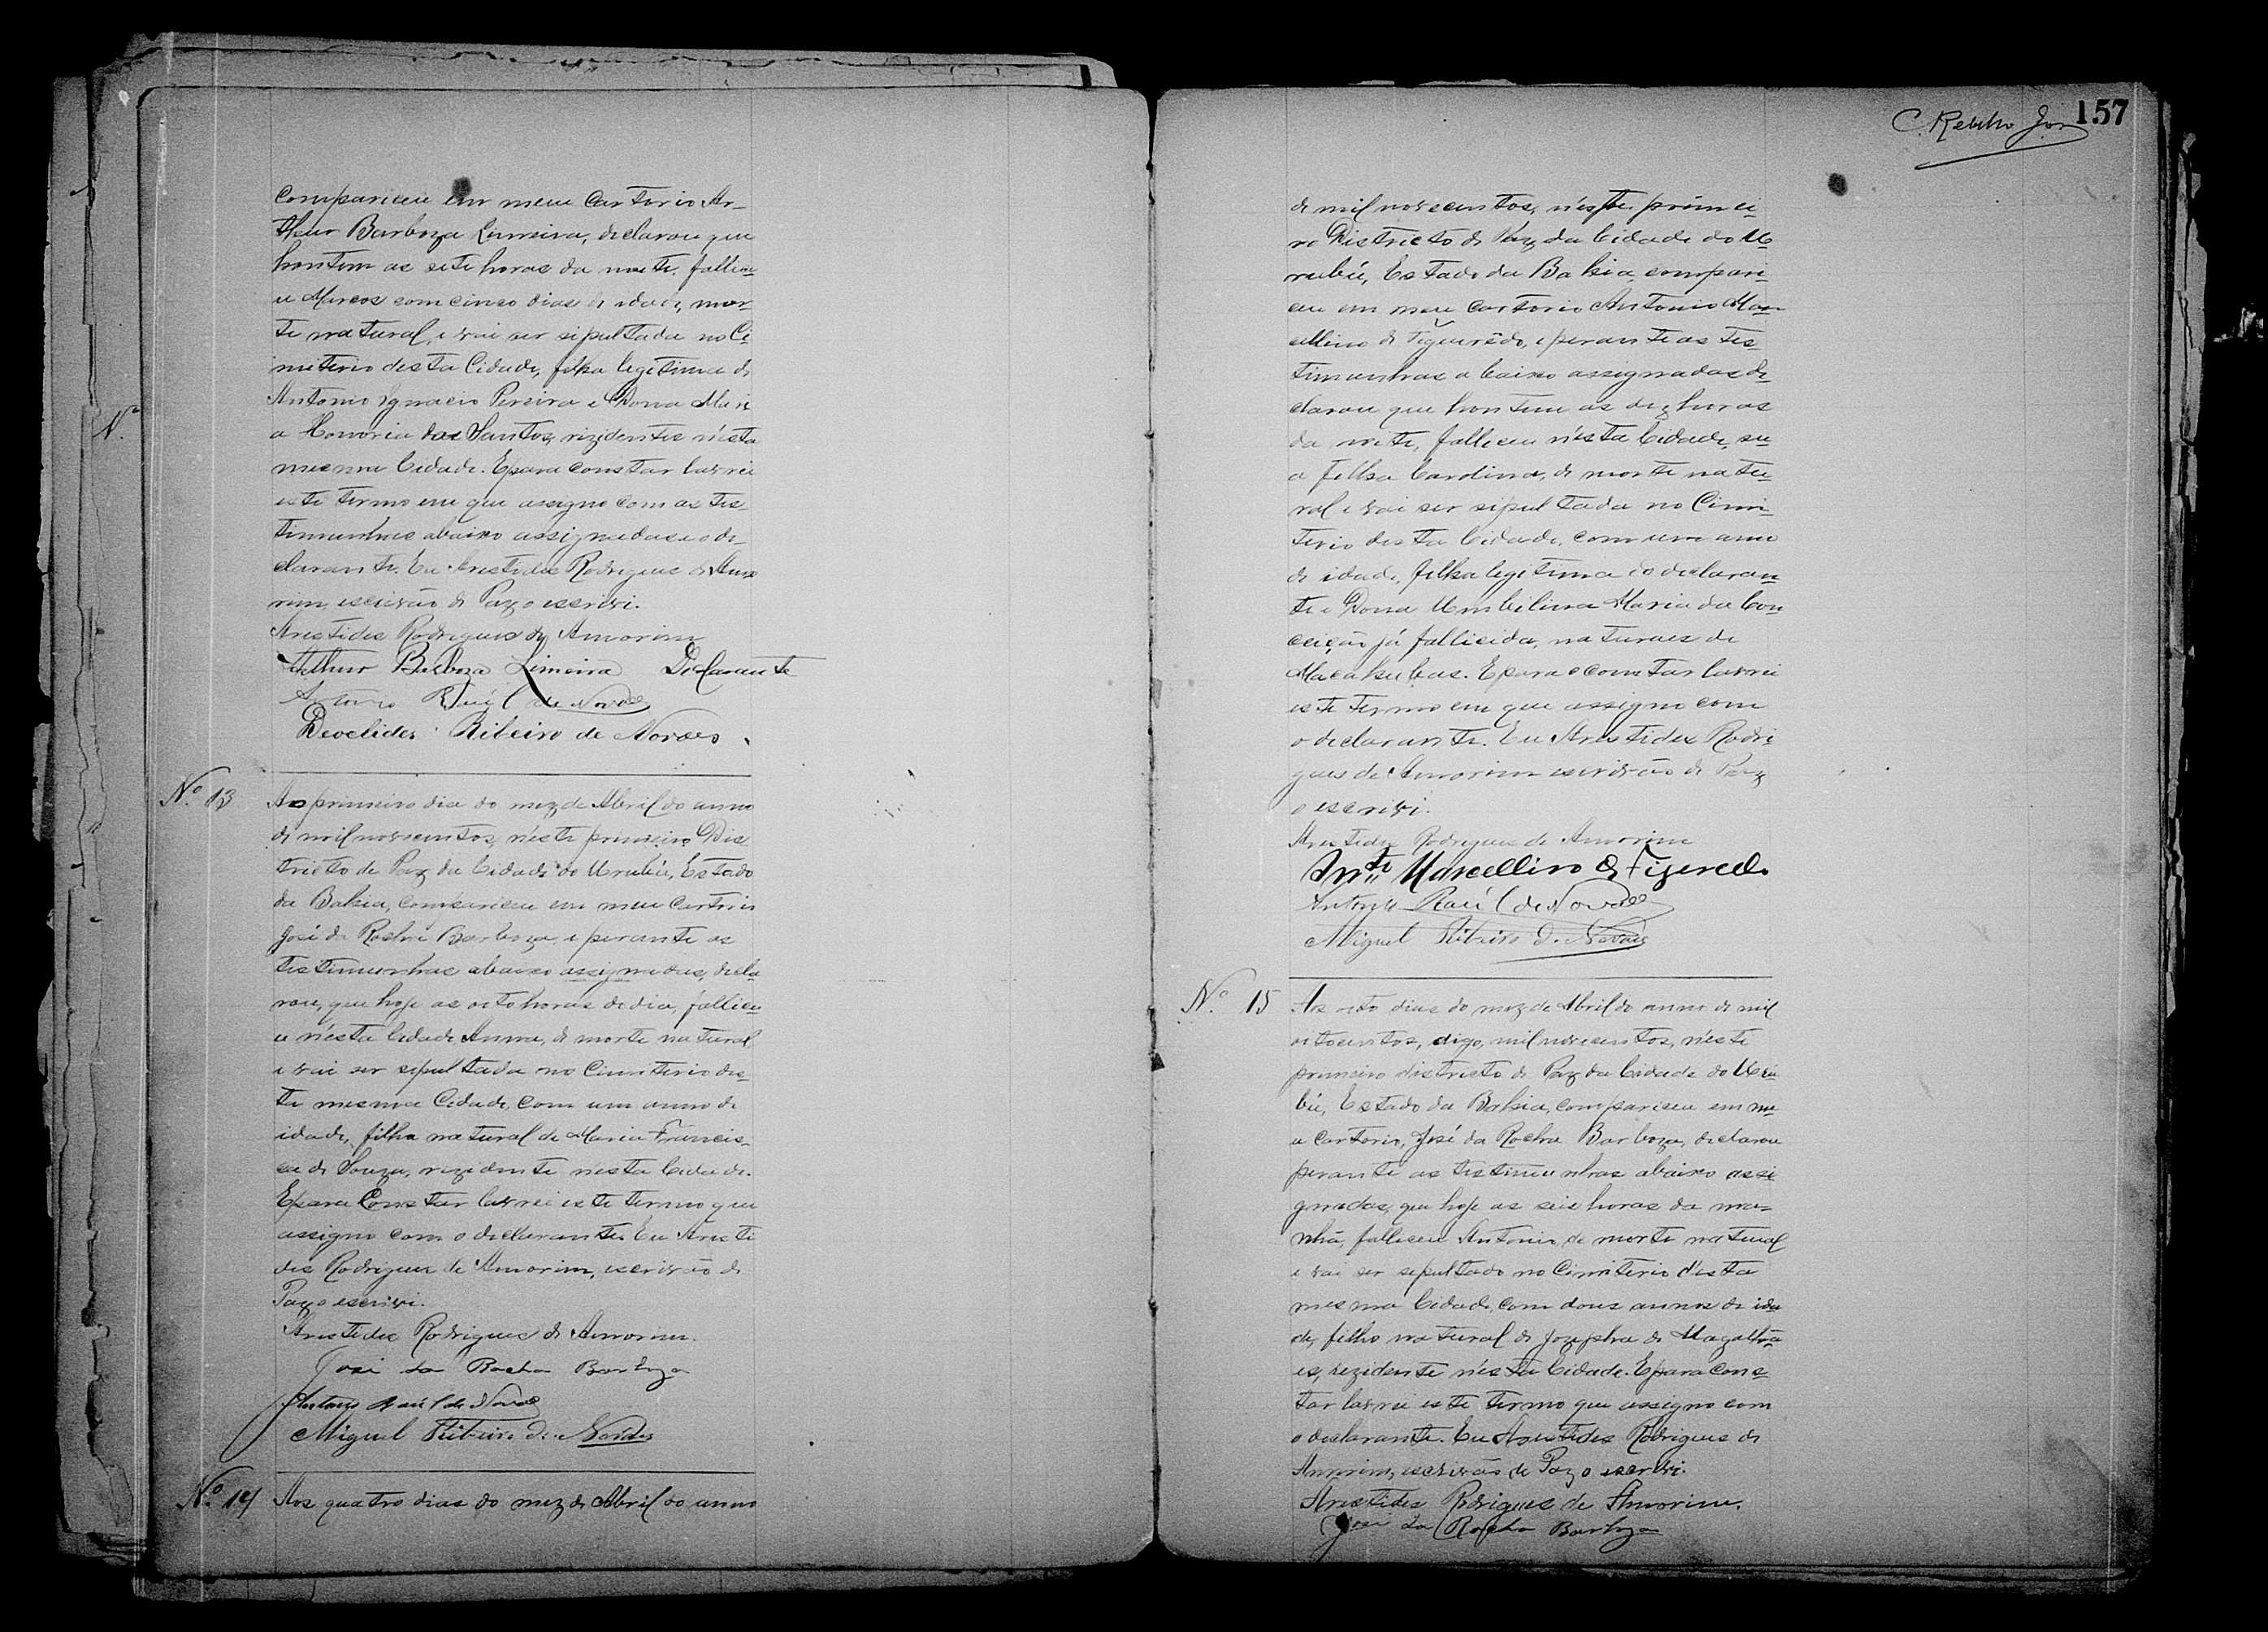 compariceu em meu Cartorio Ar-
thur Barboza Limeira, declarou que
hontem as sete horas da noite, fallice
u Marcos com cinco dias de idade, mor-
te natural, e vai ser sipultada no Ci
miterio desta Cidade, filha legitima de
Antonio Ignacio Pereira e Dona Mari
a Honoria dos Santos, rizidentes nésta
mesma Cidade. E para constar lavrei
este termo em que assigno com as tes
timunhas abaixo assignadas e o de-
clarante. Eu Aristides Rodrigues de Amo
rim, escrivão de Paz o escrivi.
Aristides Rodrigues de Amorim
Arthur Barboza Limeira Declarante
Antonio Raúl de Novaes
Deoclides Ribeiro de Novaes
Nº 13 Ao primeiro dia do mez de Abril do anno
de mil novecentos, néste primeiro Dis
tricto de Paz da Cidade do Urubú, Estado
da Bahia, compariceu em meu Cartorio
José da Rocha Barboza, e perante as
tistimunhas abaixo assignadas, decla
rou, que hoje as oito horas do dia, fallice
u nésta Cidade Anna, de morte natural
e vai ser sipultada no Cimiterio des-
ta mesma Cidade, com um anno de
idade, filha natural de Maria Francis-
ca de Souza, rezidente nesta Cidade.
E para Constar lavrei este termo que
assigno com o declarante. Eu Aristi
des Rodrigues de Amorim, escrivão de
Paz o escrivi.
Aristides Rodrigues de Amorim.
José da Rocha Barboza
Antonio Raúl de Novaes
Miguel Ribeiro de Novaes
Nº 14 Aos quatro dias do mez de Abril do anno
157
de mil novecentos, néste primei-
ro Districto de Paz da Cidade do U
rubú, Estado da Bahia, compari
ceu em meu cartorio Antonio Mar
cellino de Figuerêdo, e perante as tes
timunhas abaixo assignadas de
clarou que hontem as dez horas
da noite, falleceu nésta Cidade, su
a filha Cardina, de morte natu-
ral e vai ser sipultada no Cimi-
terio desta Cidade, com um anno
de idade, filha legitima do declaran
te e Dona Umbilina Maria da Con
ceição já fallicida, naturaes de
Macahubas. E para constar lavrei
este termo em que assigno com
o declarante. Eu Aristides Rodri
gues de Amorim escrivão de Paz
o escrivi.
Aristides Rodrigues de Amorim
Antº Marcellino de Figueredo
Antonio Raúl de Novaes
Miguel Ribeiro de Novaes
Nº. 15 Aos oito dias do mez de Abril do anno de mil
oitocentos, digo, mil novecentos, néste
primeiro districto de Paz da Cidade do Uru
bú, Estado da Bahia, compariceu em me
u cartorio, José da Rocha Barboza, declarou
perante as tistimunhas abaixo assi
gnadas, que hoje as seis horas da ma-
nhã, falleceu Antonio, de morte natural
e vai ser sepultado no Cimiterio désta
mesma Cidade, com dous annos de ida
de, filho natural de Jozepha de Magalhã
es, rezidente nésta Cidade. E para cons
tar lavrei este termo que assigno com
o declarante. Eu Aristides Rodrigues de
Amorim, escrivão de Paz o escrivi.
Aristides Rodrigues de Amorim.
José da Rocha Barboza